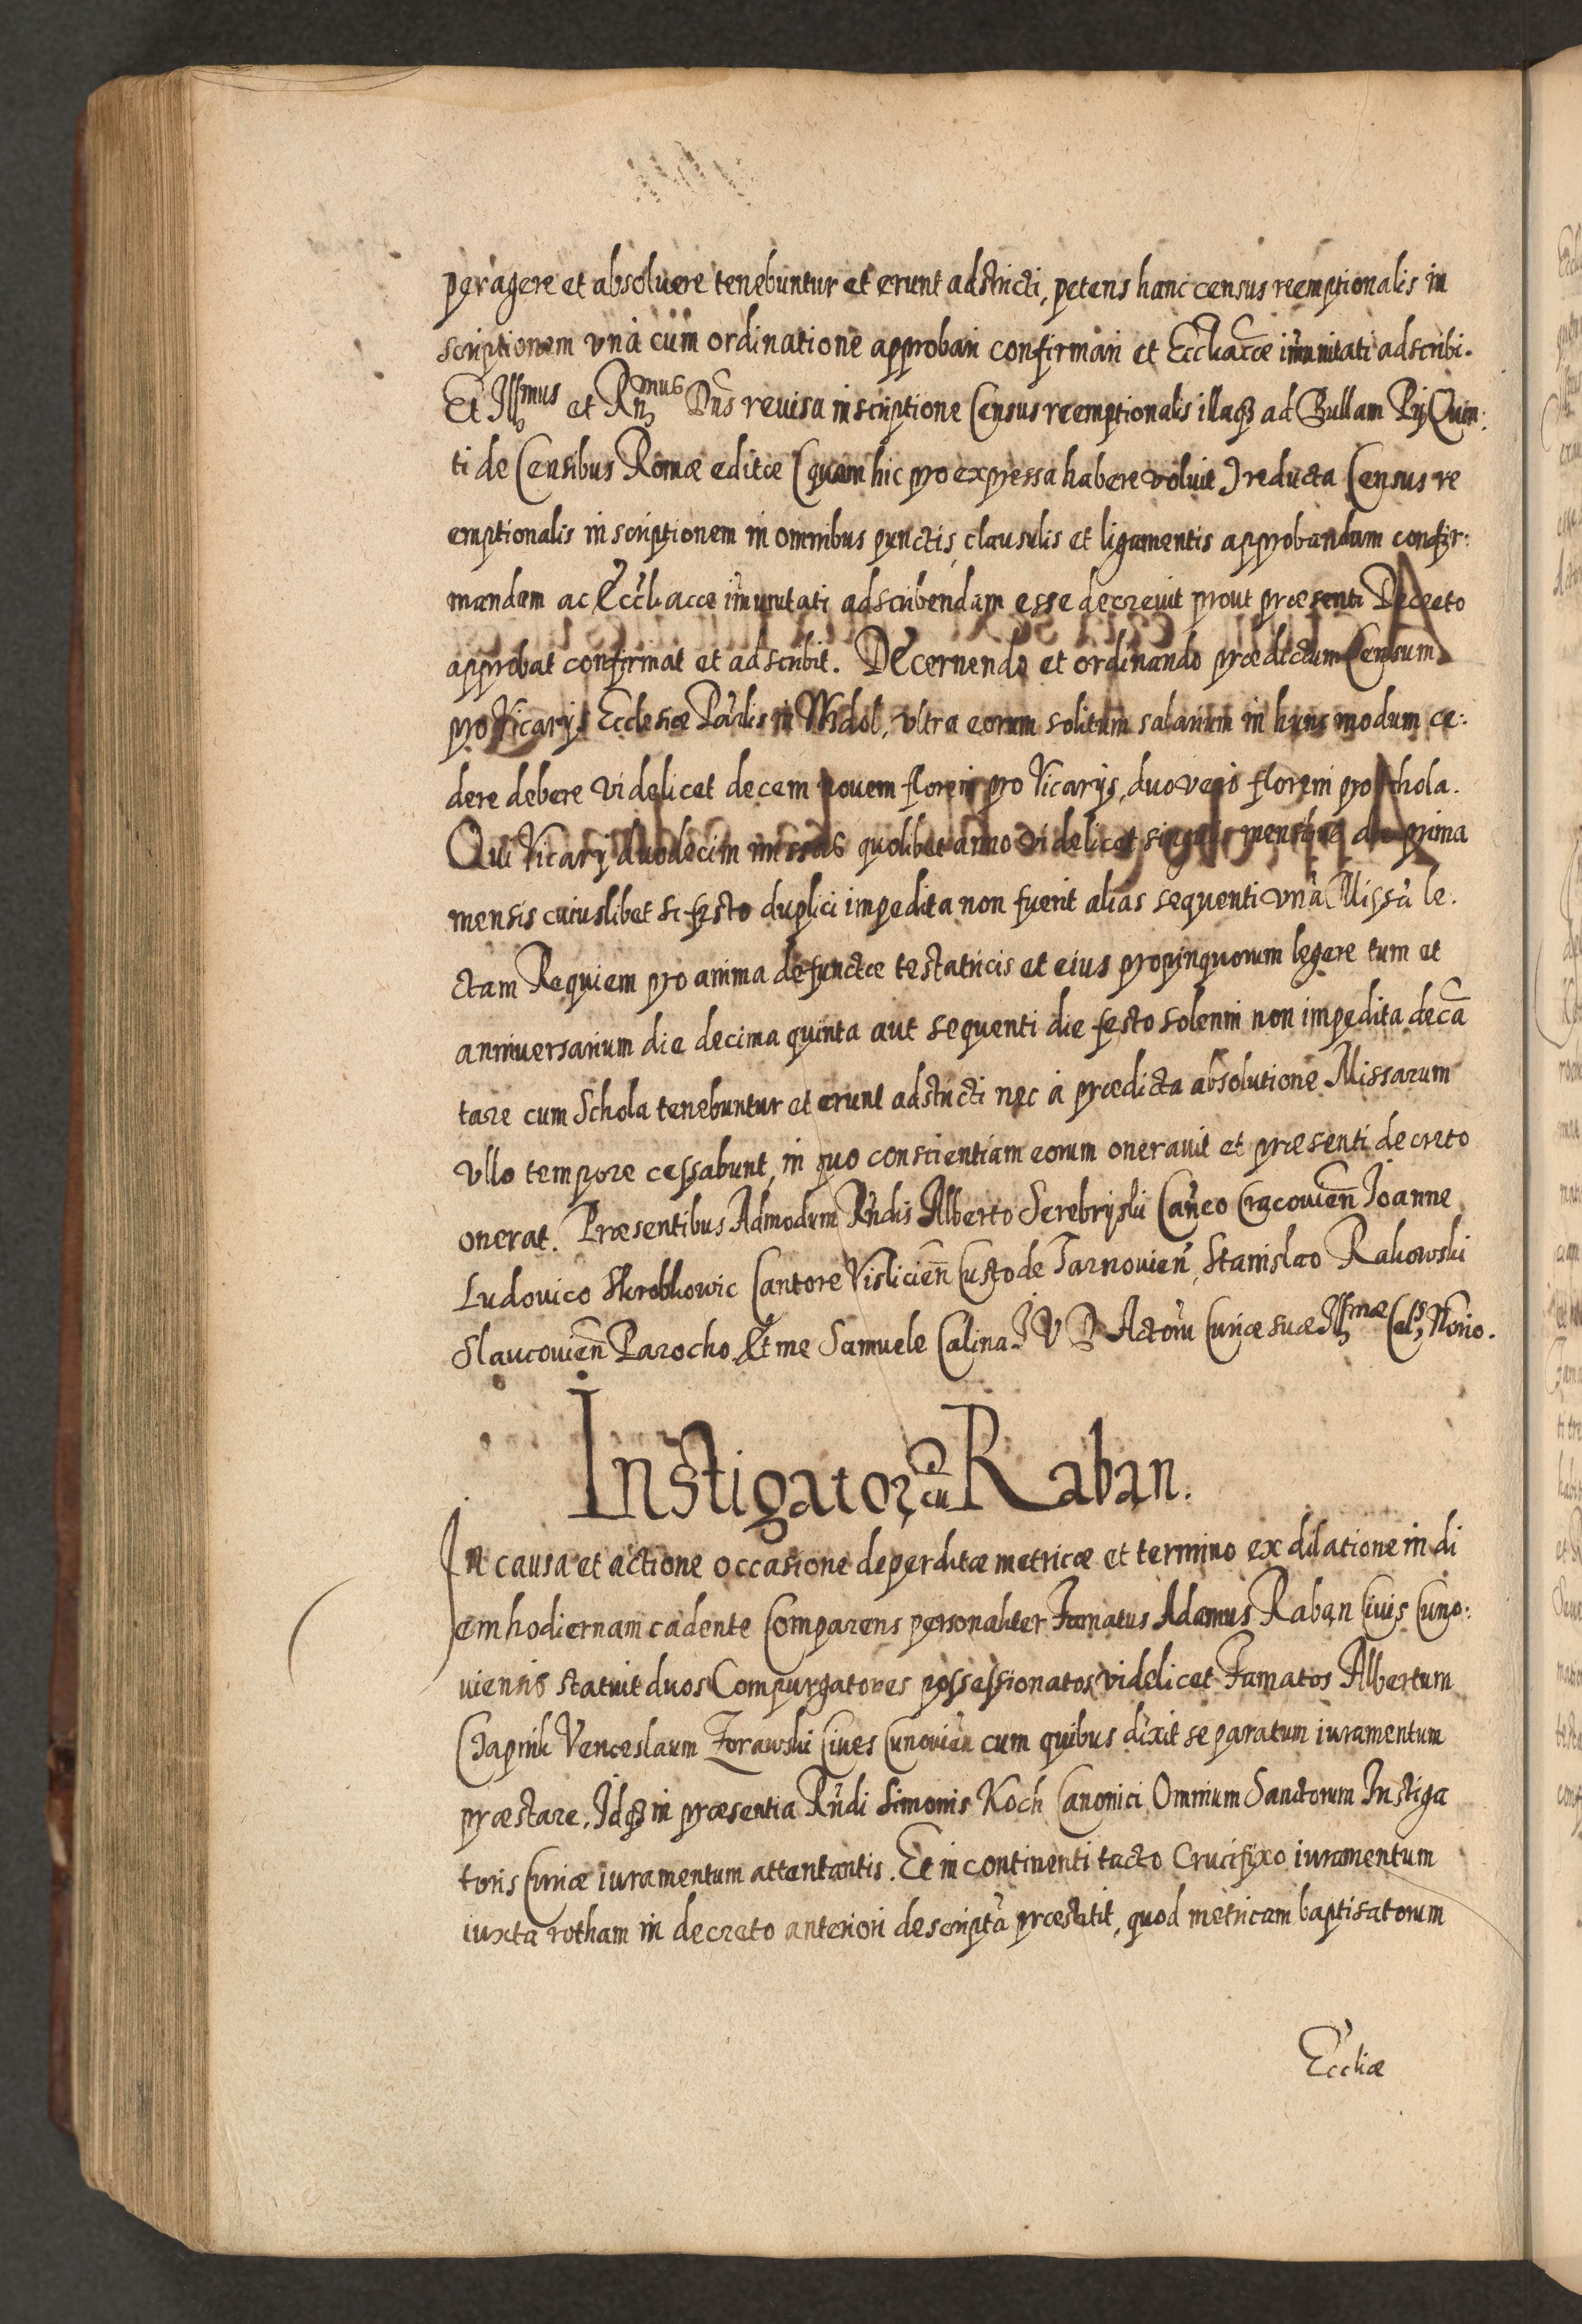 peragere et absoluere tenebuntur et erunt adstricti, petens hanc census reemptionalis in
scriptionem vnà cùm ordinatione approbari confirmari et Eccliaccæ im̃unitati adscribi.
Et Illmus et Rñmus Dñs reuisa inscriptione Census reemptionalis illaq₃ ad Bullam Pij Quin:
ti de Censibus Romæ editæ (quam hic pro expressa habere voluit) reducta Census re
emptionalis inscriptionem in omnibus punctis, clausulis et ligamentis approbandam confir:
mandam ac Eccliaccæ im̃unitati adscribendam esse decreuit prout præsenti Decreto
approbat confirmat et adscribit. Decernendo et ordinando prædictum Censum
pro Vicarijs Ecclesiæ Parlis in Midol, vltra eorum solitum salarium in hunc modum ce:
dere debere videlicet decem nouem floreni pro Vicarijs, duo vero floreni pro schola.
Qui Vicarij duodecim missas quolibet anno videlicet singulis mensibus die prima
mensis cuiuslibet si festo duplici impedita non fuerit alias sequenti vnã Missã le:
ctam Requiem pro anima defunctæ testatricis et eius propinquorum legere tum et
anniuersarium die decima quinta aut sequenti die festo solenni non impedita decã
tare cum Schola tenebuntur et erunt adstricti nec à prædicta absolutione Missarum
vllo tempore cessabunt, in quo conscientiam eorum onerauit et præsenti decreto
onerat. Præsentibus Admodum Rñdis Alberto Serebryski Cañco Cracouieñ Ioanne
Ludovico Skrobkowic Cantore Vislicieñ Custode Tarnouieñ, Stanislao Rakowski
Slaucouieñ Parocho Et me Samuele Calina I V D Actorũ Curiæ suæ Illmæ Cels: Notrio.
Instigator cũ Raban.
In causa et actione occasione deperditæ metricæ et termino ex dilatione in di
em hodiernam cadente Comparens personaliter Famatus Adamus Raban Ciuis Cuno:
uiensis statuit duos Compurgatores possessionatos videlicet Famatos Albertum
Czapnik Venceslaum Zorawski Ciues Cunouieñ cum quibus dixit se paratum iuramentum
præstare, Idq₃ in præsentia Rñdi Simonis Koch Canonici Omnium Sanctorum Instiga
toris Curiæ iuramentum attentantis. Et in continenti tacto Crucifixo iuramentum
iuxta rotham in decreto anteriori descriptã præstitit, quod metricam baptisatorum
Eccliæ